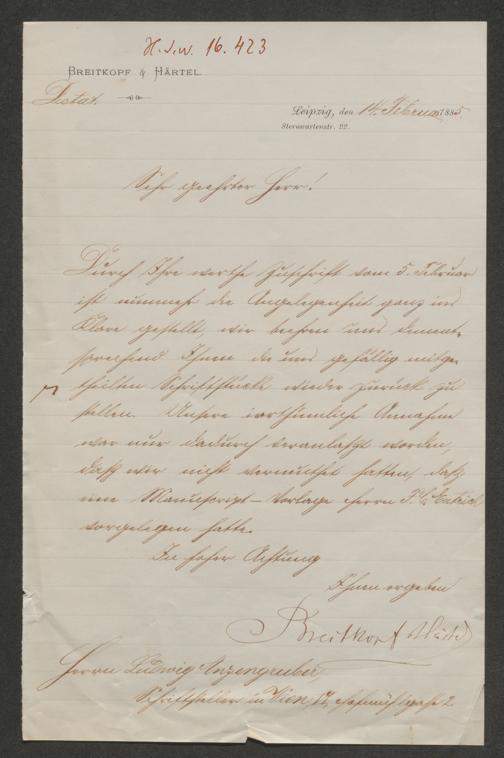 H.I.N. 16.423
BREITKOPF & HÄRTEL.
Dictat.
Leipzig, den 14. Februar 1885
Sternwartenstr. 22.
Sehr geehrter Herr!
Durch Ihre werthe Zuschrift vom 5. Februar
ist nunmehr die Angelegenheit ganz ins
Klare gestellt, wir beehren uns dement-
sprechend Ihnen die uns gefällig mitge-
theilten Schriftstücke wieder zurück zu
stellen. Unsere irrthümliche Annahme
war nur dadurch veranlaßt worden,
daß wir nicht vermuthet hatten, daß
eine Manuscript-Vorlage Herrn
vorgelegen hatte.
In hoher Achtung
Ihnen ergeben
Breitkopf & Härtel
Herrn Ludwig Anzengruber,
Schriftsteller in Wien, 2